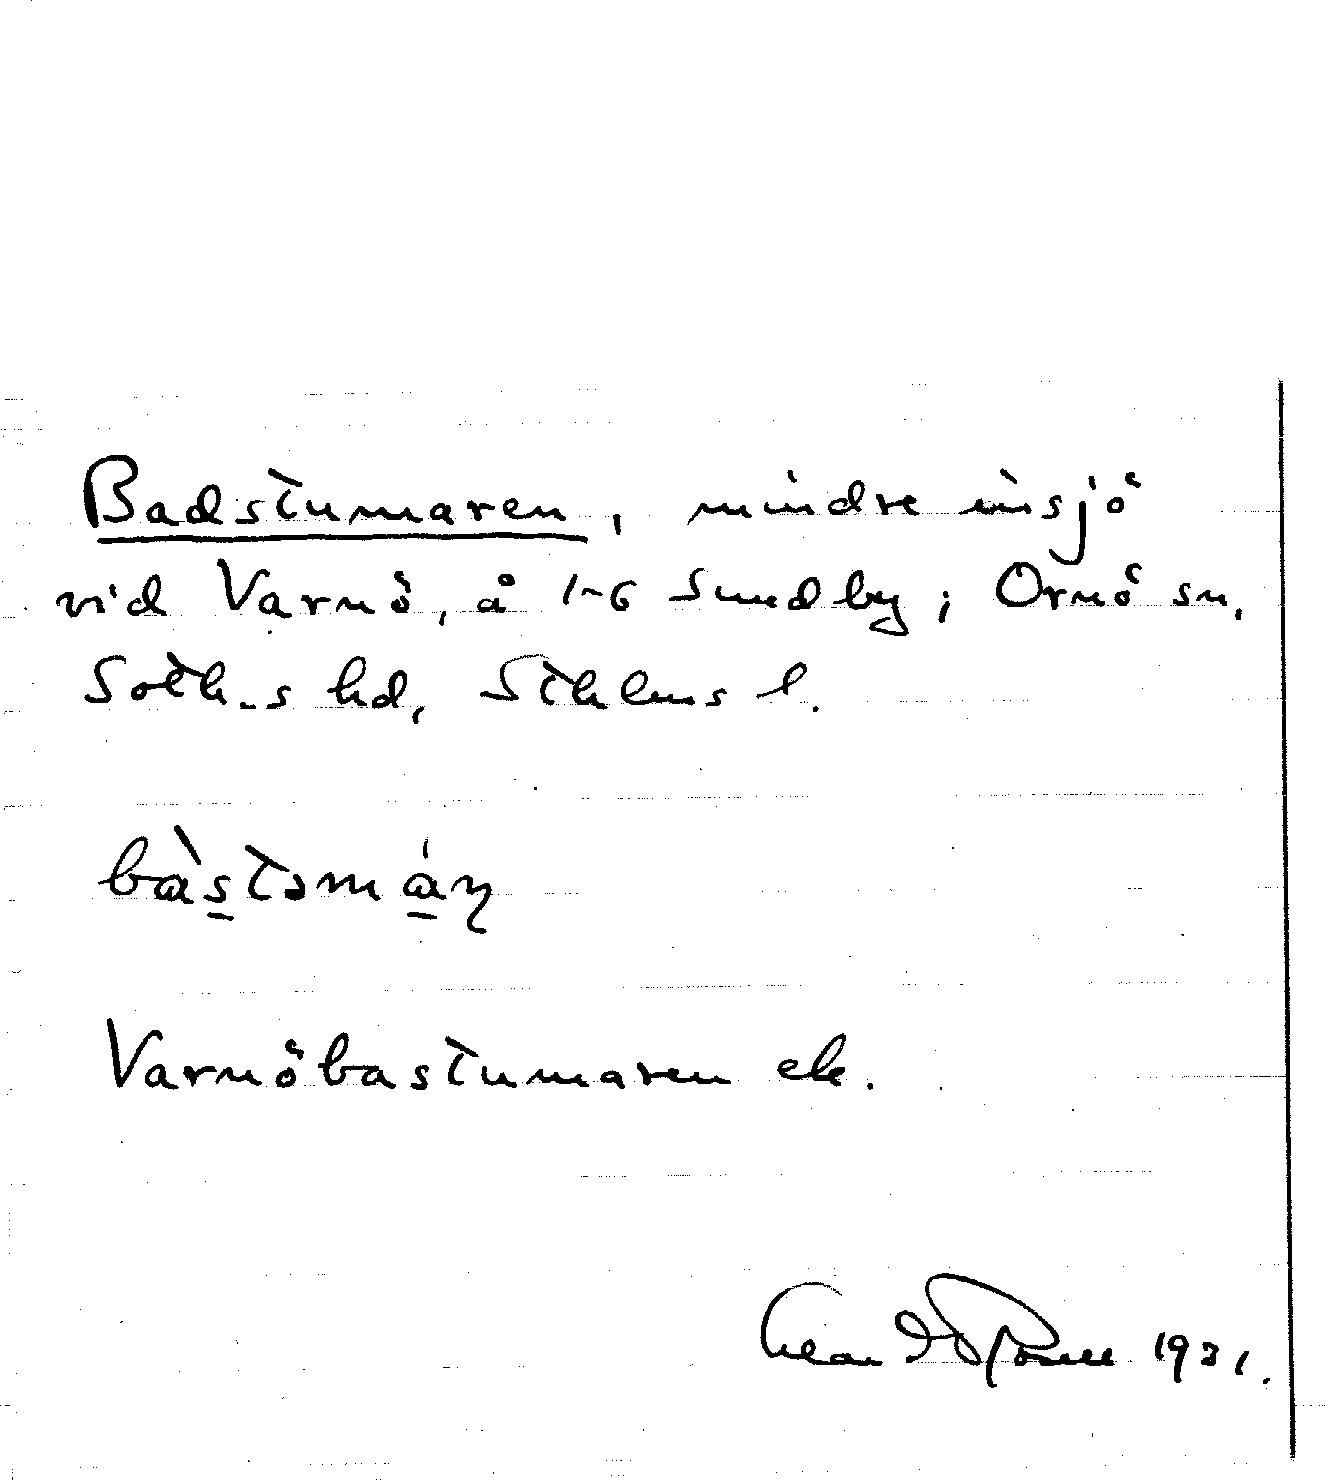 Badstumaren, mindre insjö
vid Varnö, å 1-6 Sundby; Ornö sn,
Soth.s hd, Sthlms l.
Varnöbastumaren ek.
1931.